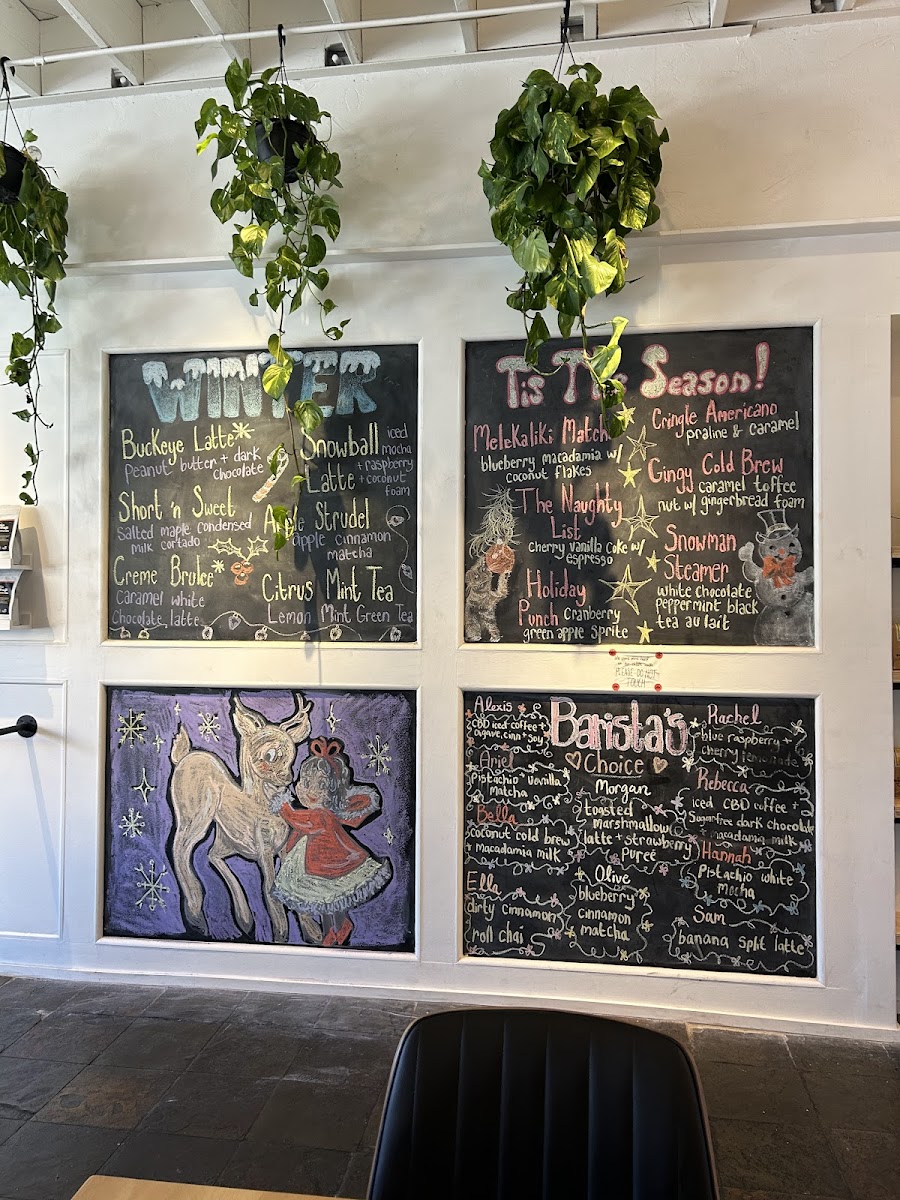 WINTER
Buckeye Latte
Peanut butter + dark
chocolate
Short 'n Sweet
Salted maple condensed
milk cortado
Creme Brulee
Caramel white
Chocolate latte
Snowball iced
mocha
Latte + raspberry
+ coconut
foam
Apple Strudel
apple cinnamon
matcha
Citrus Mint Tea
Lemon Mint Green Tea
Tis The Season!
MeleKaliki Matcha
blueberry macadamia w/
coconut flakes
The Naughty
List
cherry vanilla coke w/
espresso
Holiday
Punch cranberry
green apple sprite
Cringle Americano
praline & caramel
Gingy Cold Brew
caramel toffee
nut w/ gingerbread foam
Snowman
Steamer
white chocolate
peppermint black
tea au lait
PLEASE DO NOT
TOUCH
Barista's
Choice
Alexis
CBD iced coffee +
agave, cinn + soy
Ariel
Pistachio vanilla
matcha
Bella
coconut cold brew
+ macadamia milk
Ella
dirty cinnamon
roll chai
Morgan
toasted
marshmallow
latte + strawberry
Pureé
Olive
blueberry
cinnamon
matcha
Rachel
blue raspberry +
cherry lemonade
Rebecca
iced CBD coffee +
Sugarfree dark chocolate
+ macadamia milk
Hannah
Pistachio white
mocha
Sam
banana split latte